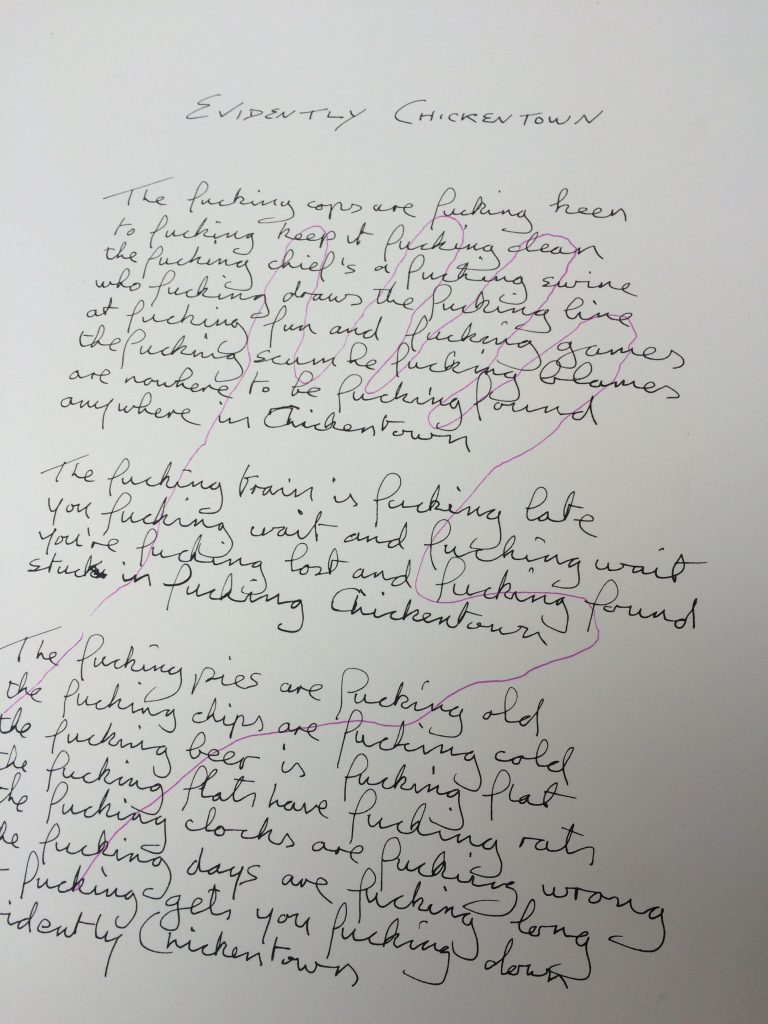 EVIDENTLY CHICKENTOWN
The fucking cops are fucking keen
to fucking keep it fucking clean
the fucking chief's a fucking swine
who fucking draws the fucking line
at fucking fun and fucking games
the fucking scum he fucking blames
are nowhere to be fucking found
anywhere in Chickentown
The fucking train is fucking late
you fucking wait and fucking wait
you're fucking lost and fucking found
stuck in fucking Chickentown
The fucking pies are fucking old
the fucking chips are fucking cold
the fucking beer is fucking flat
the fucking flats have fucking rats
the fucking clocks are fucking wrong
he fucking days are fucking long
t fucking gets you fucking down
vidently Chickentown